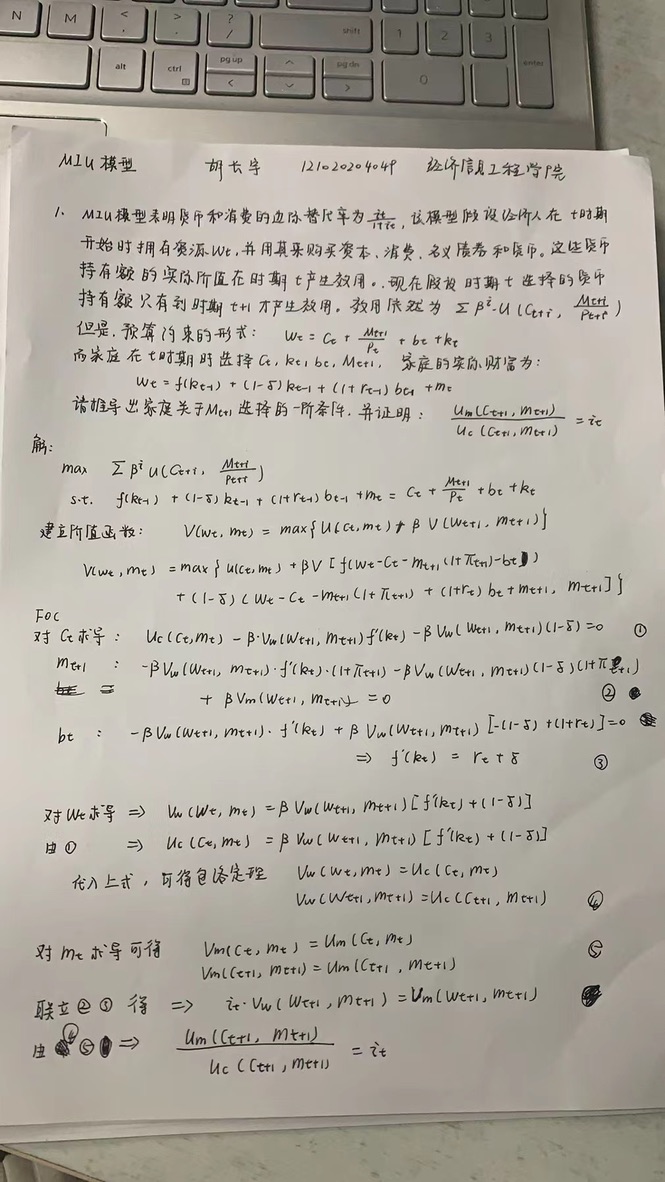 N M < > ? / shift 1 2 3
alt ctrl pg up pg dn 0 enter
MIU模型 胡长宇 121020204049 经济信息工程学院
1. MIU模型表明货币和消费的边际替代率为 it/(1+it), 该模型假设经济人在t时期
开始时拥有资源Wt, 并用其来购买资本、消费、名义债券和货币。这些货币
持有额的实际价值在时期t产生效用。现在假设时期t选择的货币
持有额只有到时期t+1才产生效用。效用依然为 Σβ^i·U(Ct+i, Mt+i/Pt+i)
但是, 预算约束的形式: Wt = Ct + Mt+1/Pt + bt + kt
而家庭在t时期时选择 Ct, kt, bt, Mt+1, 家庭的实际财富为:
Wt = f(kt-1) + (1-δ)kt-1 + (1+rt-1)bt-1 + mt
请推导出家庭关于Mt+1选择的一阶条件, 并证明: Um(Ct+1, mt+1)/Uc(Ct+1, mt+1) = it
解:
max Σβ^i U(Ct+i, Mt+i/Pt+i)
s.t. f(kt-1) + (1-δ)kt-1 + (1+rt-1)bt-1 + mt = Ct + Mt+1/Pt + bt + kt
建立价值函数: V(wt, mt) = max{U(Ct, mt) + βV(wt+1, mt+1)}
V(wt, mt) = max{u(ct, mt) + βV[f(wt-Ct-mt+1(1+πt+1)-bt)
+ (1-δ)(wt-Ct-mt+1(1+πt+1) + (1+rt)bt + mt+1, mt+1]}
FOC
对Ct求导: Uc(Ct, mt) - β·Vw(Wt+1, mt+1)f'(kt) - βVw(Wt+1, mt+1)(1-δ) = 0 ①
mt+1 : -βVw(Wt+1, mt+1)·f'(kt)·(1+πt+1) - βVw(Wt+1, mt+1)(1-δ)(1+πt+1)
+ βVm(Wt+1, mt+1) = 0 ②
bt : -βVw(Wt+1, mt+1)·f'(kt) + βVw(Wt+1, mt+1)[-(1-δ)+(1+rt)] = 0
⇒ f'(kt) = rt + δ ③
对Wt求导 ⇒ Vw(Wt, mt) = βVw(Wt+1, mt+1)[f'(kt) + (1-δ)]
由① ⇒ Uc(Ct, mt) = βVw(Wt+1, mt+1)[f'(kt) + (1-δ)]
代入上式, 可得包络定理 Vw(wt, mt) = Uc(Ct, mt)
Vw(Wt+1, mt+1) = Uc(Ct+1, mt+1) ④
对mt求导可得 Vm(Ct, mt) = Um(Ct, mt) ⑤
Vm(Ct+1, mt+1) = Um(Ct+1, mt+1)
联立②③得 ⇒ it·Vw(Wt+1, mt+1) = Vm(Wt+1, mt+1)
由④⑤ ⇒ Um(Ct+1, mt+1)/Uc(Ct+1, mt+1) = it